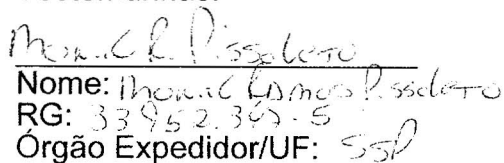 R. Pissoleto
Nome: Ramos Pissoleto
RG: 33952.347-5
Órgão Expedidor/UF: SSP